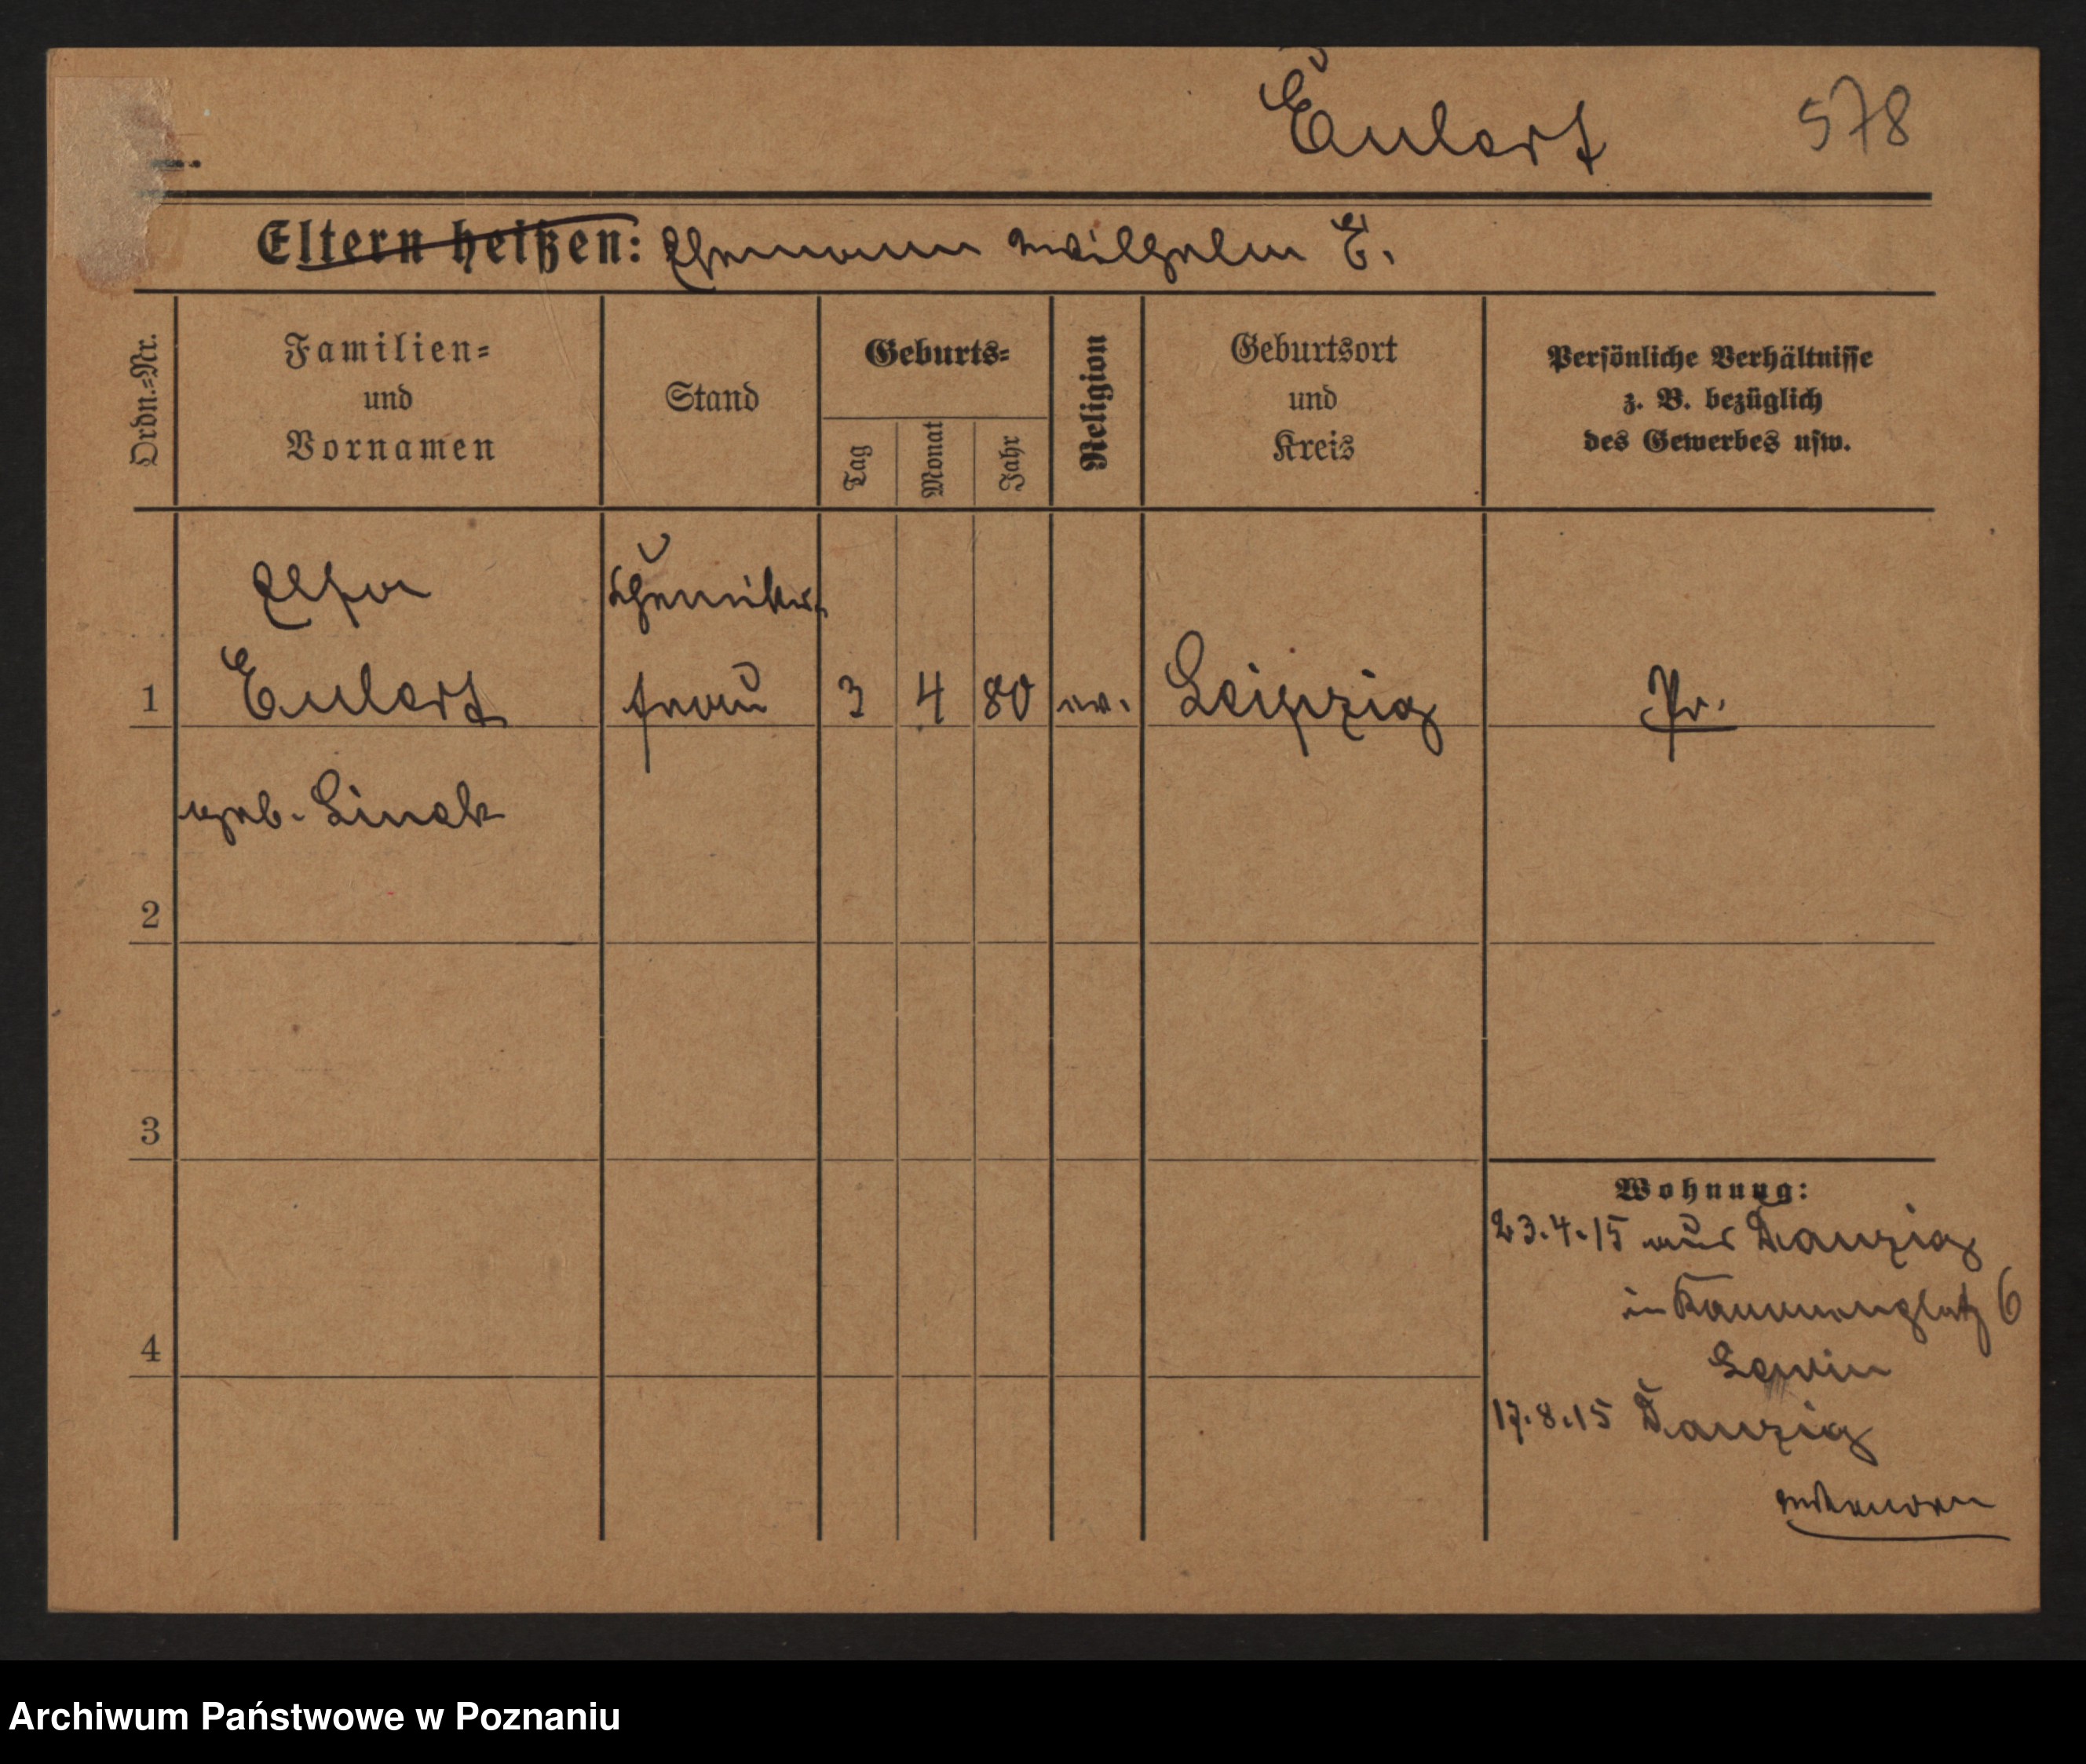 Eulert 578
Eltern heißen: Ehemann Wilhelm E.
Ordn.=Nr.
Familien=
und
Vornamen
Stand
Geburts=
Tag
Monat
Jahr
Religion
Geburtsort
und
Kreis
Persönliche Verhältnisse
z. B. bezüglich
des Gewerbes usw.
Elsa Chemiker
1 Eulert frau 3 4 80 ev. Leipzig Pr.
geb. Linek
2
3
Wohnung:
23.4.15 aus Danzig
in 6
4
17.8.15 Danzig
verzogen
Archiwum Państwowe w Poznaniu